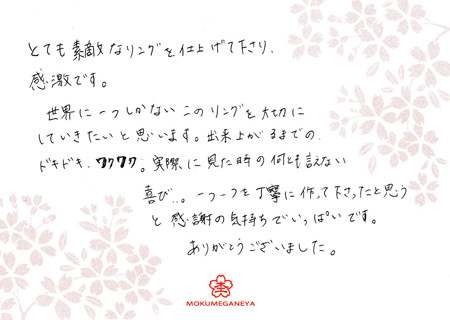 とても素敵なリングを仕上げて下さり、
感激です。
世界に一つしかないこのリングを大切に
していきたいと思います。出来上がるまでの
ドキドキ、ワクワク。実際に見た時の何とも言えない
喜び…。一つ一つを丁寧に作って下さったと思う
と感謝の気持ちでいっぱいです。
ありがとうございました。
MOKUMEGANEYA